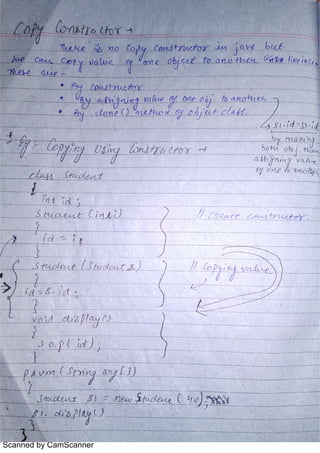 Copy Constructor →
There is no copy constructor in java but
we can copy value of one object to another like
There are -
• By constructor
• By assigning value of one obj. to another
• By clone() method of object class.
s1.id=s2.id
by making
both obj. then
assigning value
of one to another
* Eg:- Copying Using Constructor →
class Student
{
int id;
Student (int i) // Create constructor.
{
id = i;
}
Student (Student s) // Copying value
{
id=s.id;
}
void display()
{
s.o.p( id);
}
p s v m ( String arg[])
{
Student s1 = new Student ( 40);
s1. display()
}
}
Scanned by CamScanner